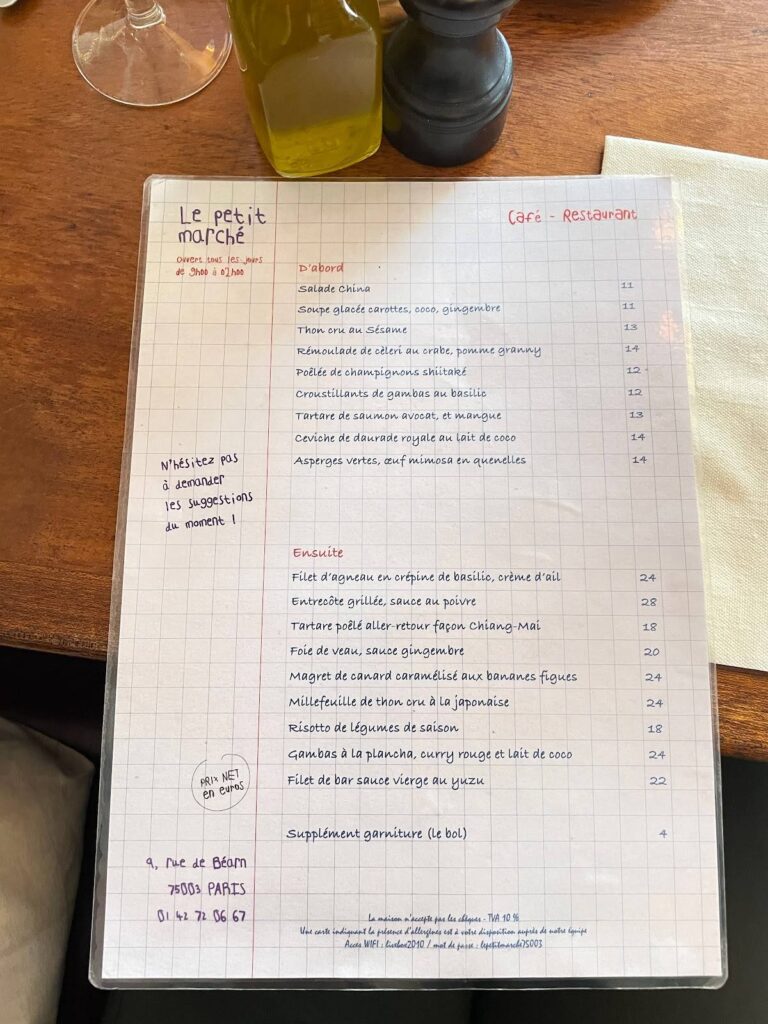 Le petit
marché
Ouvert tous les jours
de 9h00 à 02h00
Café - Restaurant
D'abord
Salade China 11
Soupe glacée carottes, coco, gingembre 11
Thon cru au Sésame 13
Rémoulade de cèleri au crabe, pomme granny 14
Poêlée de champignons shiitaké 12
Croustillants de gambas au basilic 12
Tartare de saumon avocat, et mangue 13
Ceviche de daurade royale au lait de coco 14
Asperges vertes, œuf mimosa en quenelles 14
N'hésitez pas
à demander
les suggestions
du moment !
Ensuite
Filet d'agneau en crépine de basilic, crème d'ail 24
Entrecôte grillée, sauce au poivre 28
Tartare poêlé aller-retour façon Chiang-Mai 18
Foie de veau, sauce gingembre 20
Magret de canard caramélisé aux bananes figues 24
Millefeuille de thon cru à la japonaise 24
Risotto de légumes de saison 18
Gambas à la plancha, curry rouge et lait de coco 24
Filet de bar sauce vierge au yuzu 22
PRIX NET
en euros
Supplément garniture (le bol) 4
9, rue de Béarn
75003 PARIS
01 42 72 06 67
La maison n'accepte pas les chèques - TVA 10 %
Une carte indiquant la présence d'allergènes est à votre disposition auprès de notre équipe
Accès WIFI : livebox2010 / mot de passe : lepetitmarché75003